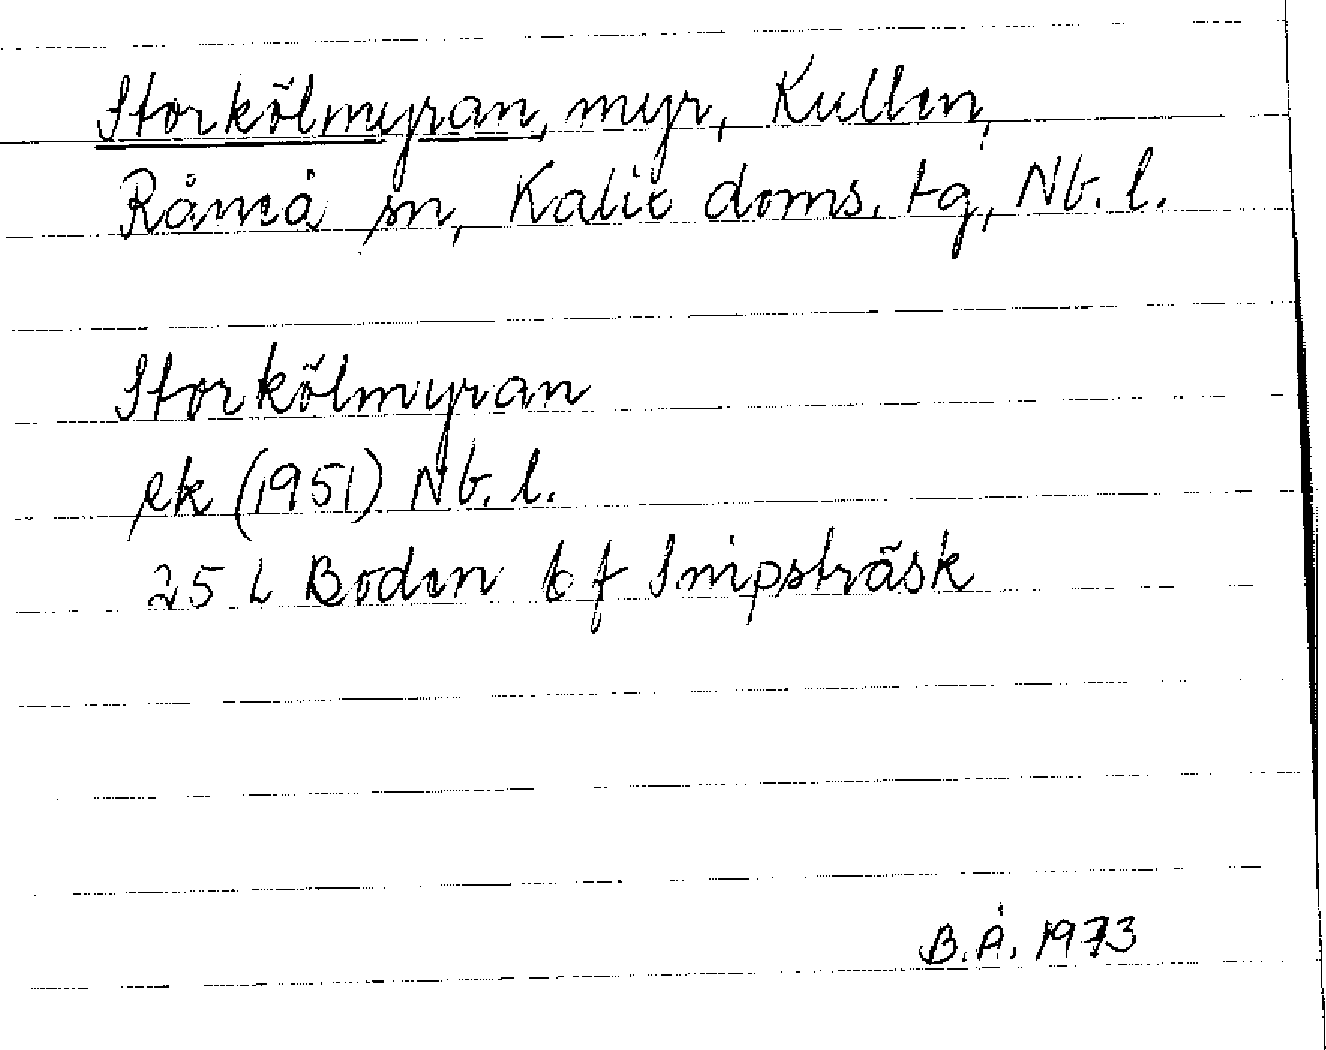 Storkölmyran, myr, Kullen,
Råneå sn, Kalix doms. tg, Nb. l.
Storkölmyran
ek (1951) Nb. l.
25 L Boden 6 f Snipsträsk
B.Å. 1973